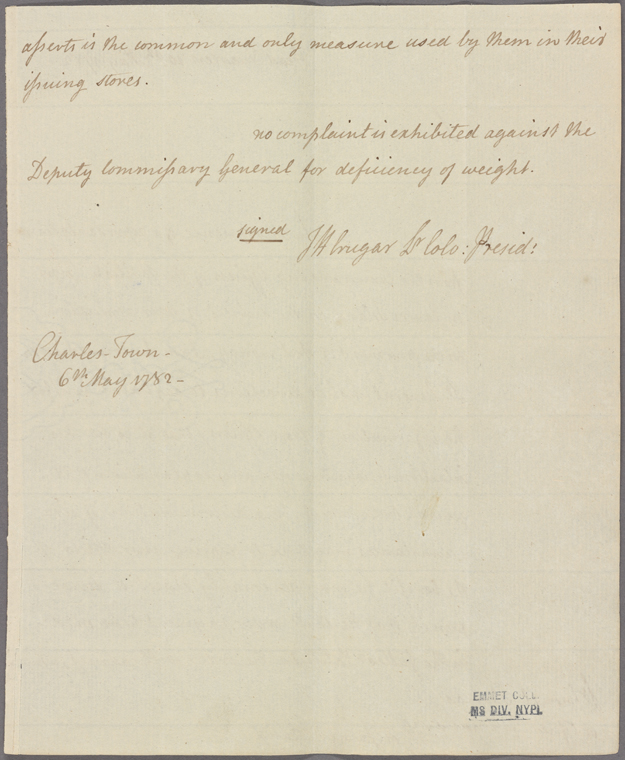 asserts is the common and only measure used by them in their
issuing stores.
no complaint is exhibited against the
Deputy Commissary General for deficiency of weight.
signed J H Crugar Lt Colo: Presid:
Charles-Town-
6th May 1782-
EMMET COLL.
MS DIV. NYPL